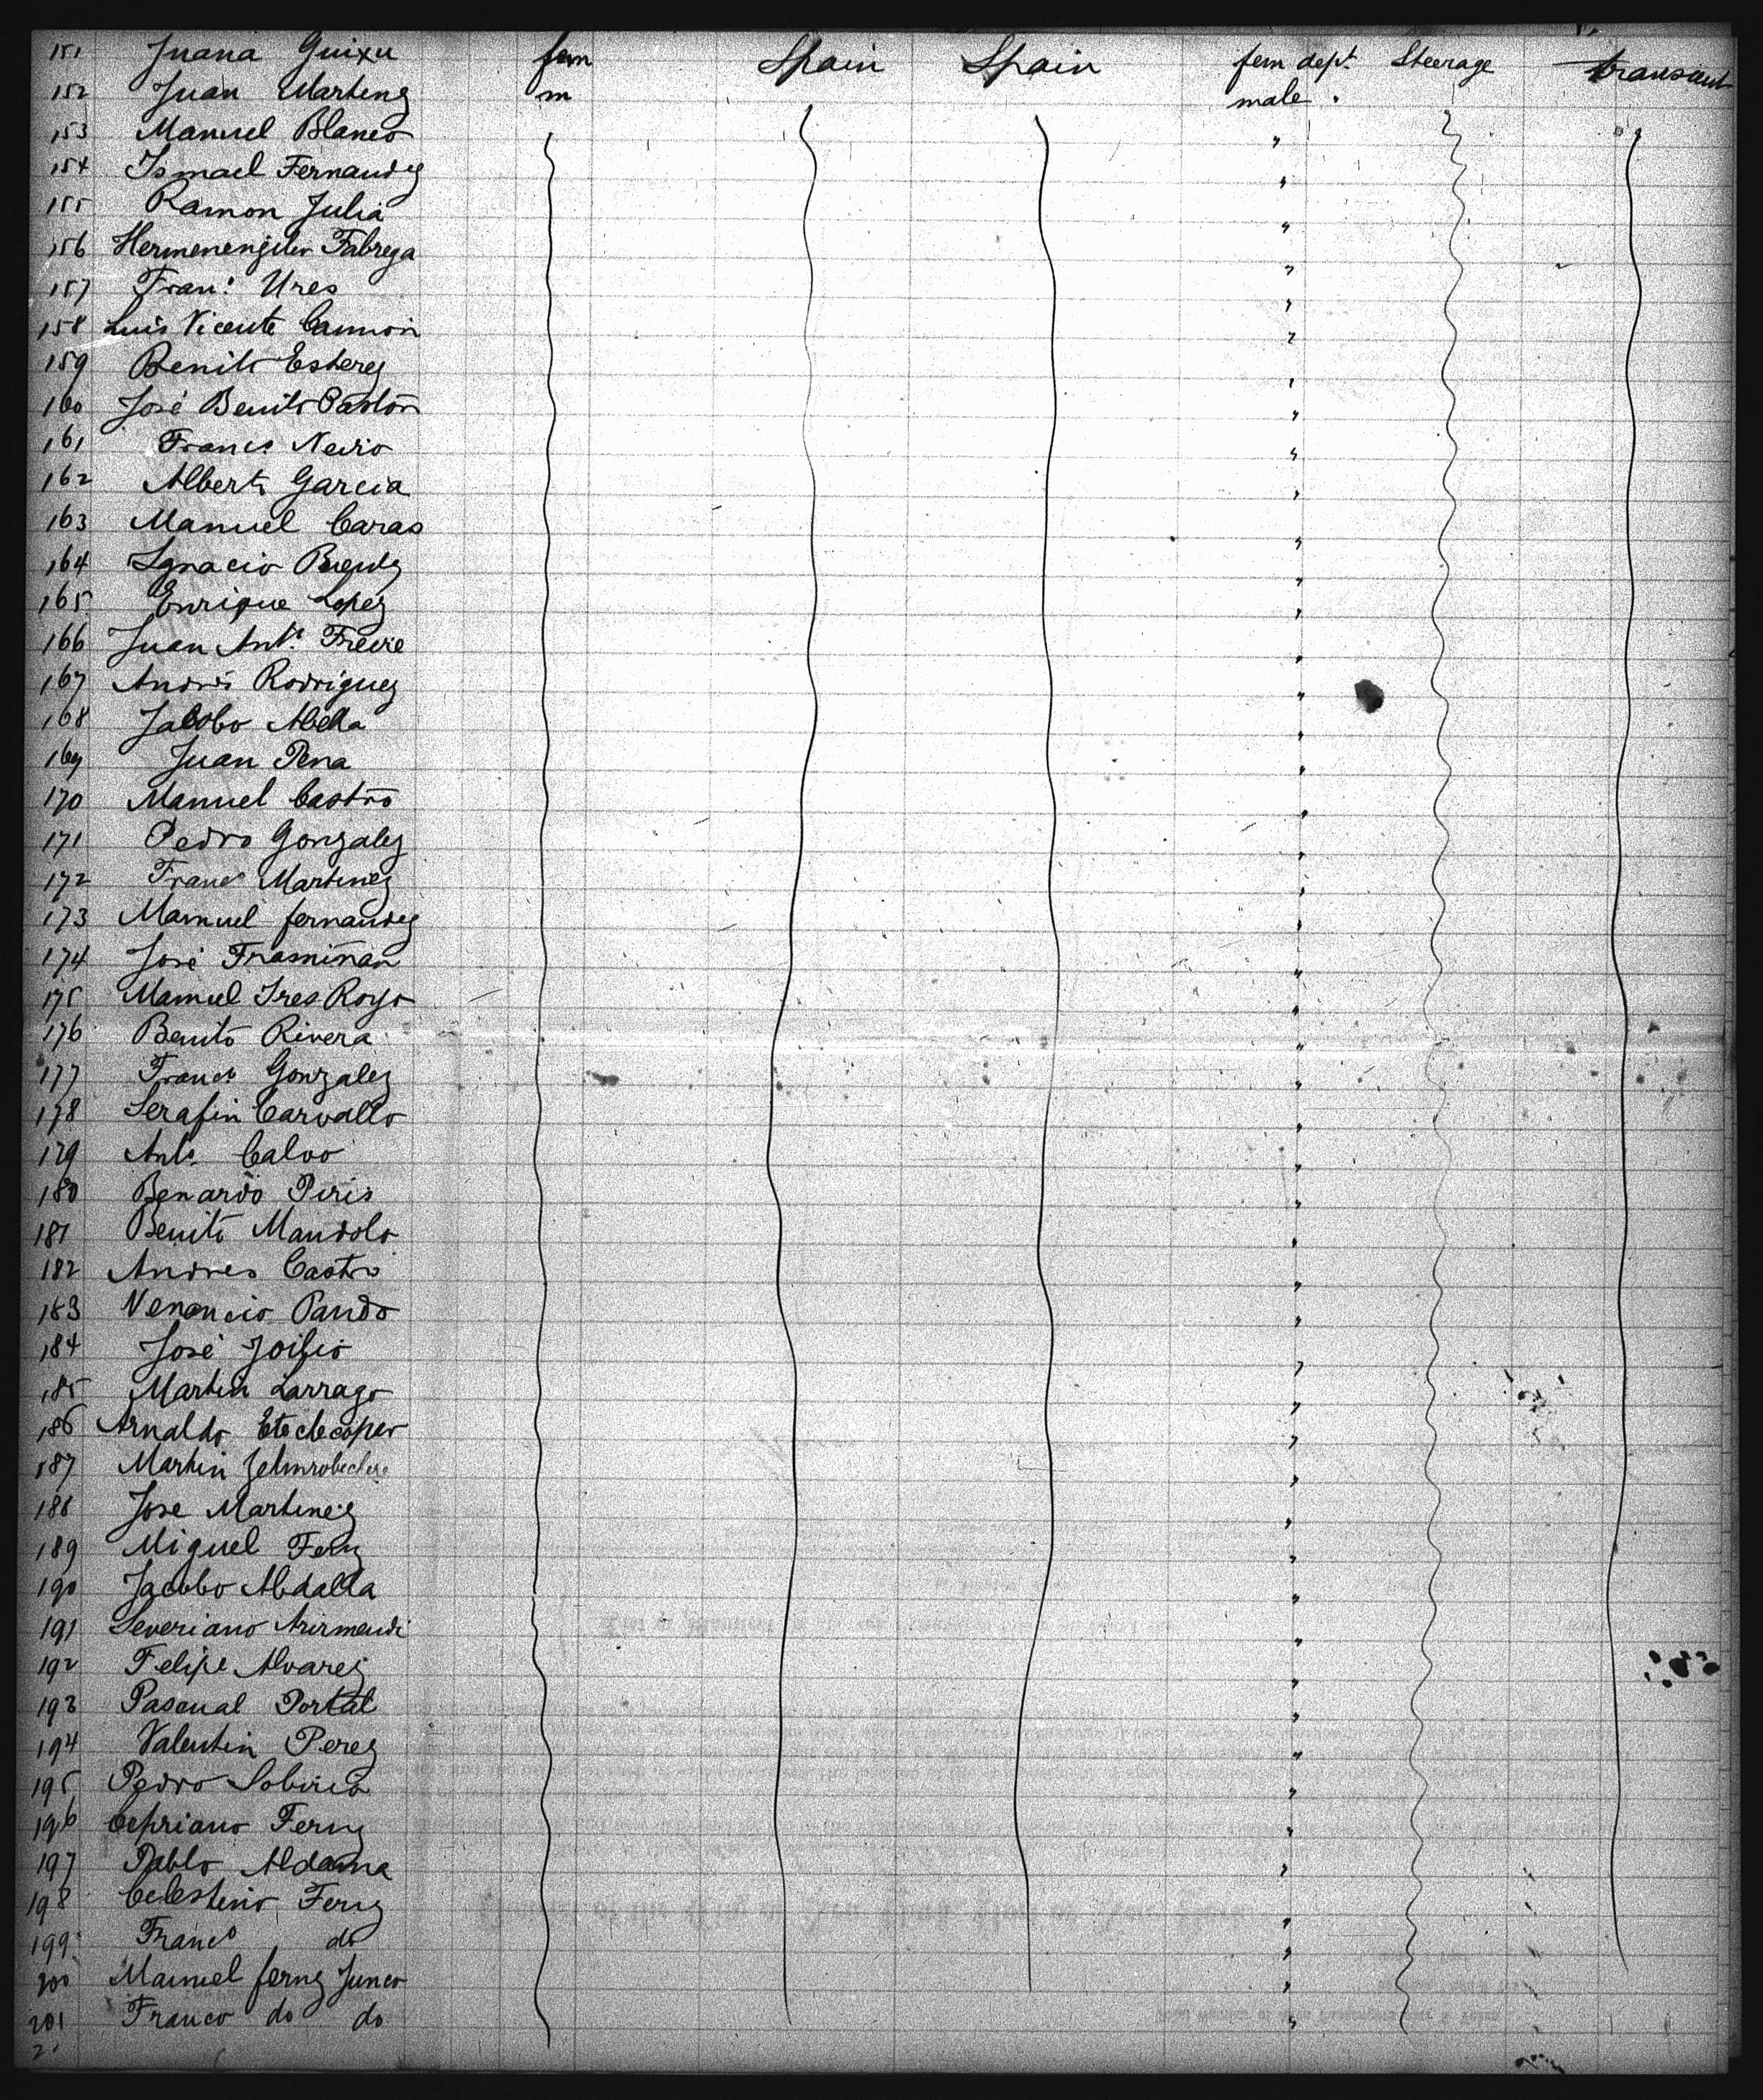 151 Juana Guixu fem Spain Spain fem dept. Steerage transcient
152 Juan Martinez m male "
153 Manuel Blanco "
154 Ismael Fernandez "
155 Ramon Juliá "
156 Hermenenjildo Fabrega "
157 Fran: Ures "
158 Luis Vicente "
159 Benito Esterez "
160 José Benito Pastor "
161 Franco Neiro "
162 Alberto Garcia "
163 Manuel Caras "
164 Ignacio "
165 Enrique Lopez "
166 Juan Anto. Freire "
167 Andrés Rodriguez "
168 Jacobo Abella "
169 Juan Pena "
170 Manuel Castro "
171 Pedro Gonzalez "
172 Franco Martinez "
173 Manuel fernandez "
174 José Framiñan "
175 Manuel Tres Royo "
176 Benito Rivera "
177 Franco Gonzalez "
178 Serafin Carvallo "
179 Anto. Calvo "
180 Benardo Piris "
181 Benito Mandolo "
182 Andres Castro "
183 Venancio Pando "
184 José "
185 Martin Larrago "
186 Arnaldo "
187 Martin "
188 Jose Martinez "
189 Miguel Fernz "
190 Jacobo Abdalla "
191 Severiano Arirmendi "
192 Felipe Alvarez "
193 Pascual Portal "
194 Valentin Perez "
195 Pedro Sobiria "
196 Cepriano Fernz "
197 Pablo Aldama "
198 Celestino Fernz "
199 Franco do "
200 Manuel fernz Junco "
201 Franco do do "
2